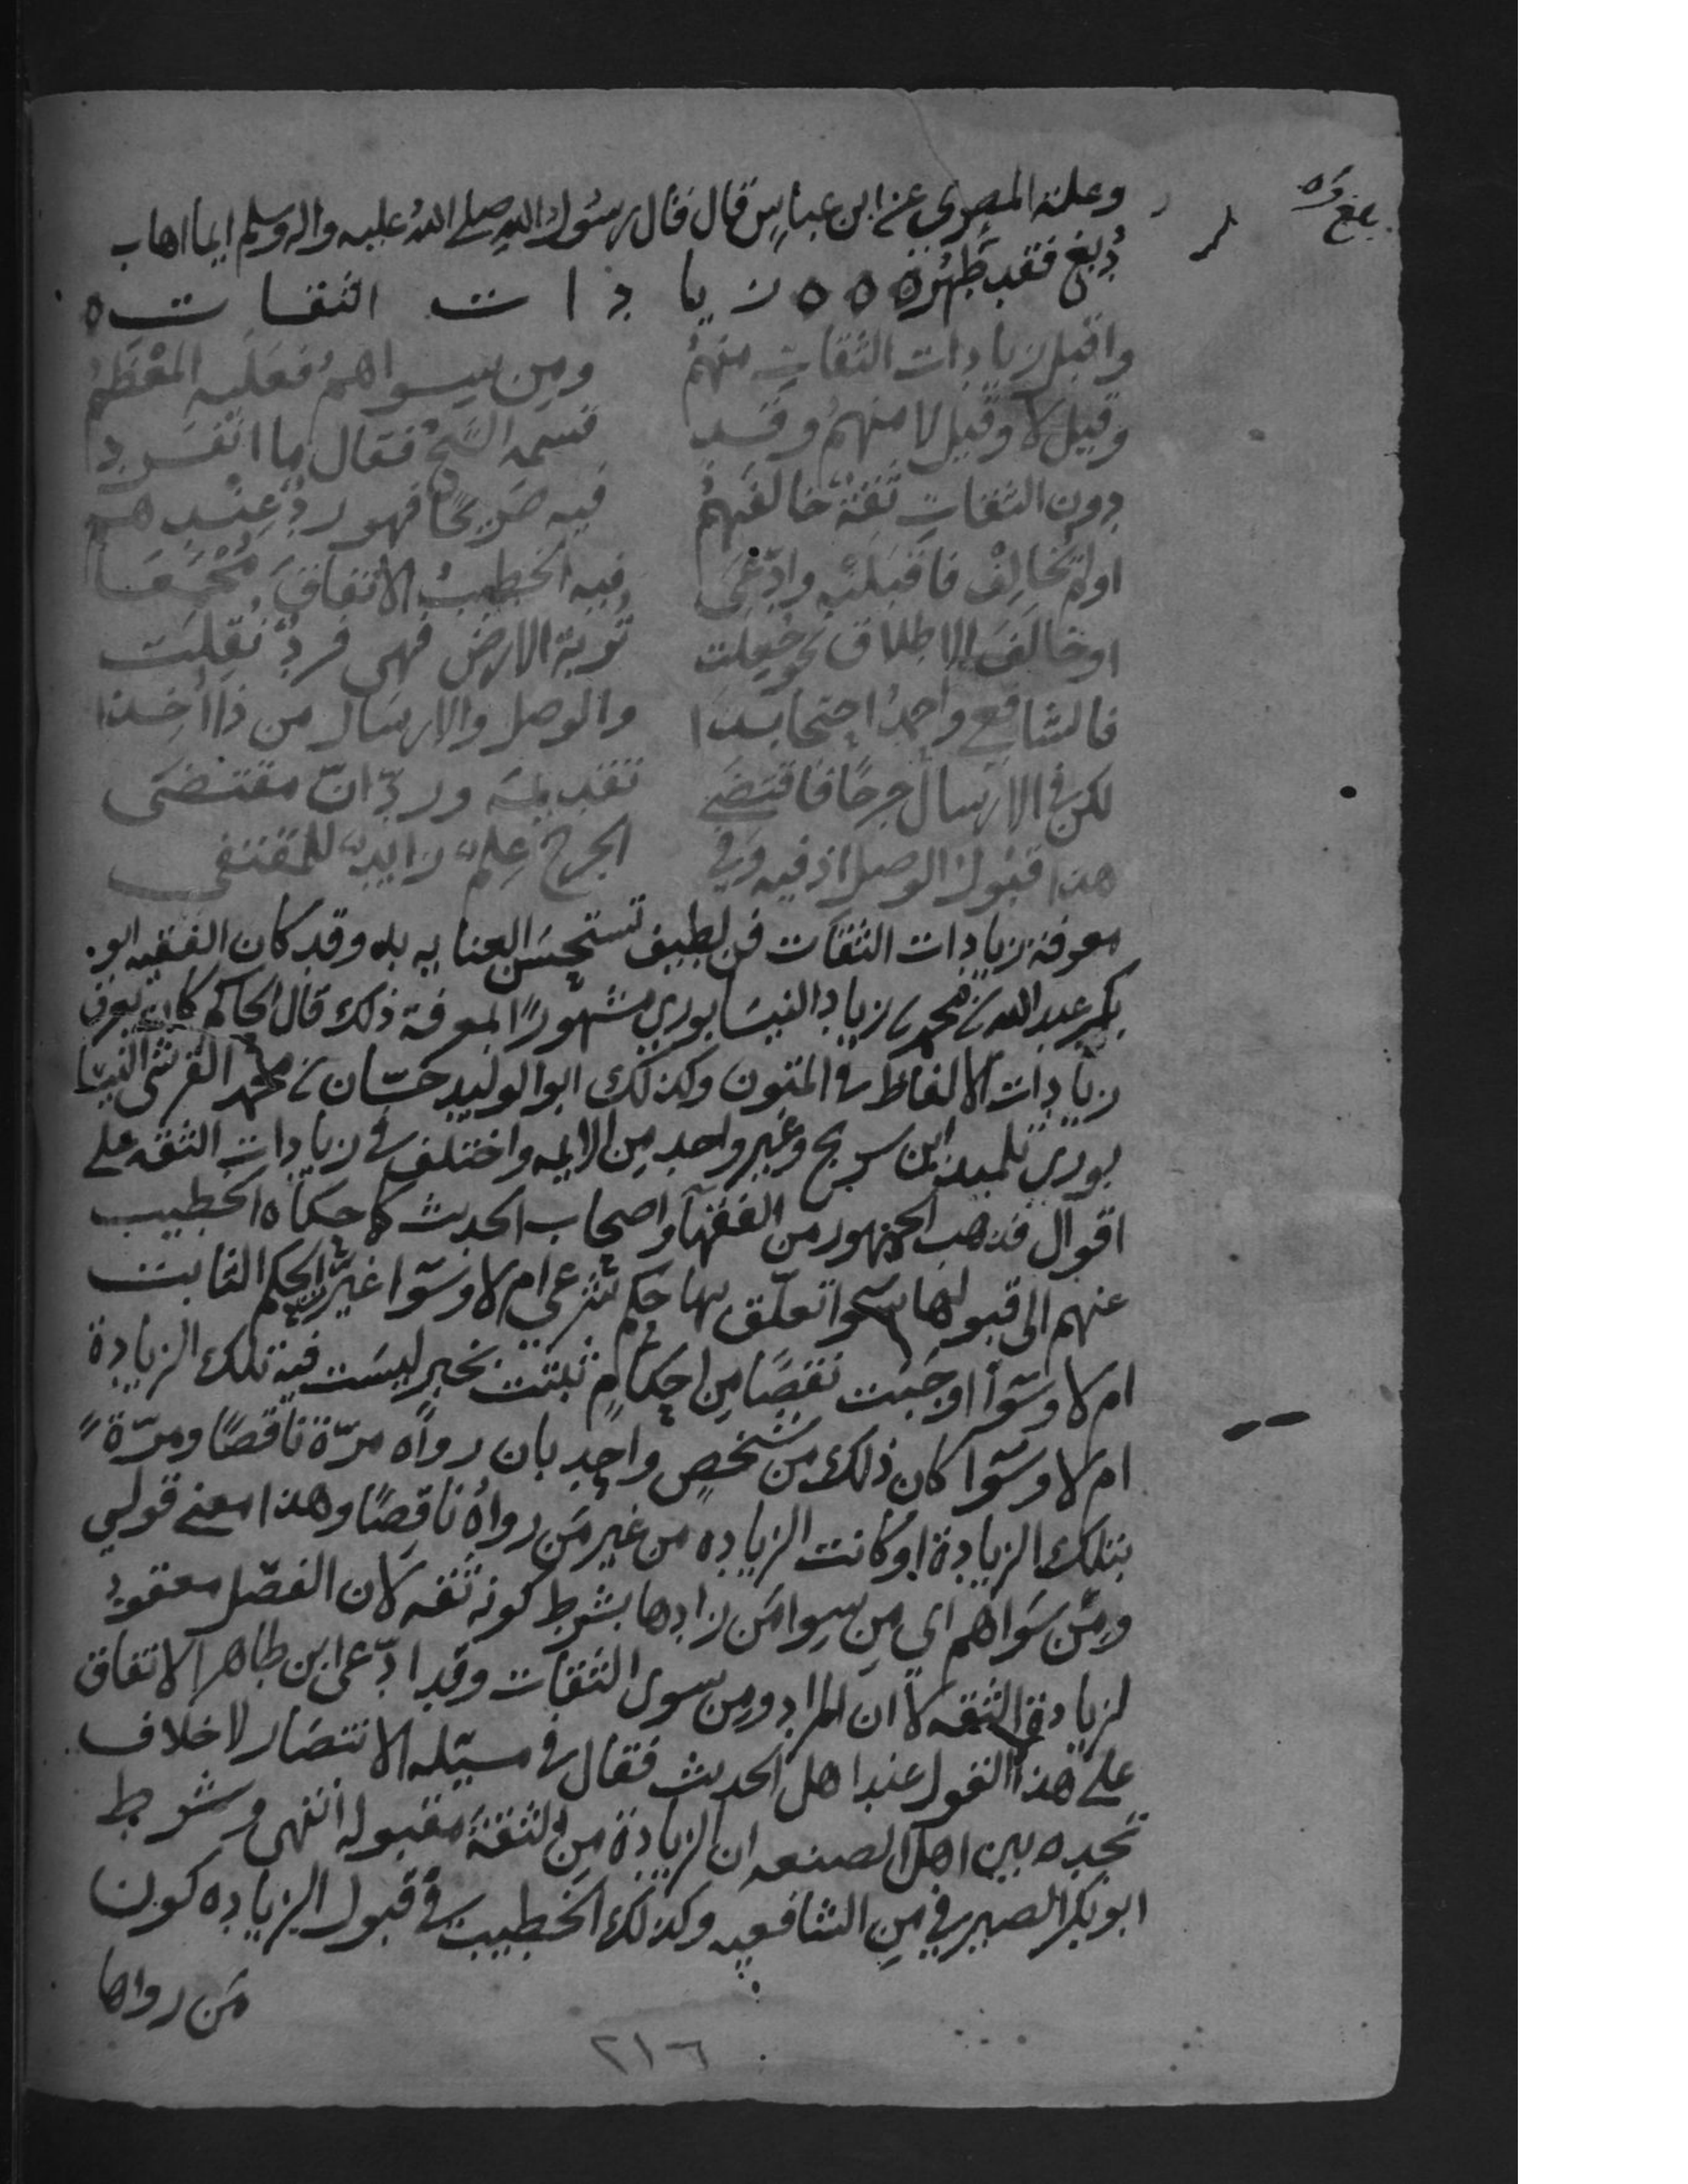 وعلة المصري عن ابن عباس قال قال رسول الله صلے الله عليه واله وسلم ايما اهاب
دُبغ فقد طَهُرَ ه ه ه زيادات الثقات ه
واقبل زيادات الثقات منهمُ ومن سواهم فعليه المعْظَمُ
وقيل لا وقيل لا منهم وقد قسمه الشيخ فقال ما انفرد
دون الثقات ثقة خالفهُم فيه صَريحًا فهو ردٌّ عندهم
او لم تخالِفْ فاقبلنْه وادّعى فيه الخطيبُ الاتفاقَ مُجْمَعَا
او خالفَ الاطلاق نحو جُعِلت تُربة الارض فهي فردٌ نُقِلَت
فالشافعي واحمدُ احتجا بذا والوصل والارسال من ذا اُخِذا
لكن في الارسال جرحًا فاقتضَى تقديمَه وردّ انّ مقتضَى
هذا قبول الوصل اذ فيه وفي الجرح عِلمٌ زايدٌ للمقتفي
معرفة زيادات الثقات فن لطيف تستحسَن العنايه به وقد كان الفقيه ابو
بكر عبد الله بن محمد بن زياد النيسابوري مشهورًا لمعرفة ذلك قال الحاكم كان يعرف
زيادات الالفاظ في المتون وكذلك ابو الوليد حسّان بن محمد القرشي النيسا
بوري تلميذ ابن سريج وغير واحد من الايمه واختلف في زيادات الثقه على
اقوال فذهب الجمهور من الفقهآ واصحاب الحديث كما حكاه الخطيب
عنهم الى قبولها سوا تعلّق بها حكم شرعي ام لا وسوا غيّرت الحكم الثابت
ام لا وسوآ اوجبت نقصًا من احكامٍ ثبتت بخبر ليسَت فيه تلك الزيادة
ام لا وسوا كان ذلك من شخصٍ واحدٍ بان رواه مرّة ناقصًا ومرّةً
بتلك الزيادة او كانت الزياده من غير من رواهُ ناقِصًا وهذا معنے قولي
ومَن سواهم اي من سوا مَن زادها بشرط كونه ثقه لان الفصل معقودٌ
لزيادة الثقه لا ان المراد ومن سوى الثقات وقد ادّعى ابن طاهر الاتفاق
على هذا القول عند اهل الحديث فقال في مسيله الانتصار لا خلاف
تجده بين اهل الصنعه ان الزيادة من الثقة مقبوله انتهى وشرط
ابو بكر الصيرفي من الشافعيه وكذلك الخطيب في قبول الزياده كون
مَن رواها
٢١٦